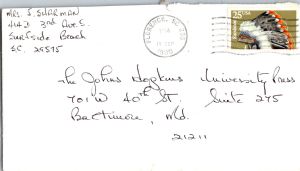 MRS. J. SURMAN
4142 3rd Ave. S.
Surfside Beach
S.C. 29575
FLORENCE, SC
PM
1990
25 USA
The Johns Hopkins University Press
701 W 40th St. Suite 275
Baltimore, Md.
21211